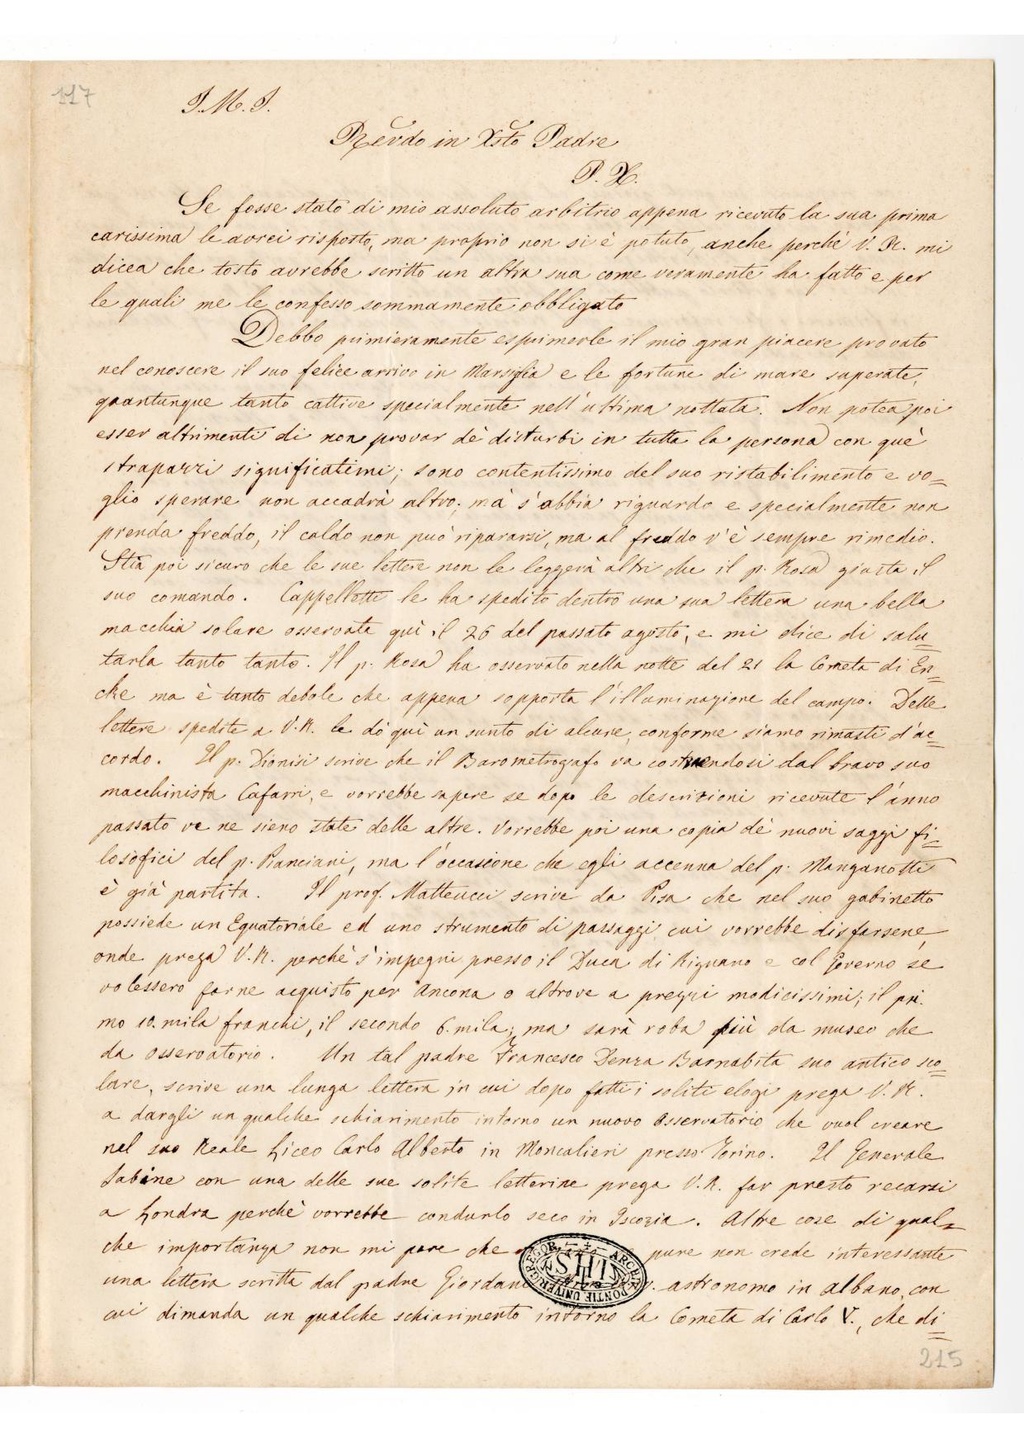 117
J. M. J.
Revdo in Xsto Padre
P. X.
Se fosse stato di mio assoluto arbitrio appena ricevuto la sua prima
carissima le avrei risposto, ma proprio non si è potuto, anche perchè V. R. mi
dicea che tosto avrebbe scritto un altra sua come veramente ha fatto e per
le quali me le confesso sommamente obbligato
Debbo primieramente esprimerle il mio gran piacere provato
nel conoscere il suo felice arrivo in Marsiglia e le fortune di mare superate,
quantunque tanto cattive specialmente nell'ultima nottata. Non potea poi
esser altrimenti di non provar dè disturbi in tutta la persona con què
strapazzi significatimi; sono contentissimo del suo ristabilimento e vo=
glio sperare non accadrà altro; mà s'abbia riguardo e specialmente non
prenda freddo, il caldo non può ripararsi, ma al freddo v'è sempre rimedio.
Stia poi sicuro che le sue lettere non le leggerà altri che il p. Rosa giusta il
suo comando. Cappelletti le ha spedito dentro una sua lettera una bella
macchia solare osservata quì il 26 del passato agosto, e mi dice di salu=
tarla tanto tanto. Il p. Rosa ha osservato nella notte del 21 la Cometa di En=
che ma è tanto debole che appena sopporta l'illuminazione del campo. Delle
lettere spedite a V. R. le dò quì un sunto di alcune, conforme siamo rimasti d'ac=
cordo. Il p. Dionisi scrive che il Barometrografo va costruendosi dal bravo suo
macchinista Cafarri, e vorrebbe sapere se dopo le descrizioni ricevute l'anno
passato ve ne sieno state delle altre. Vorrebbe poi una copia dè nuovi saggi fi=
losofici del p. Pianciani, ma l'occasione che egli accenna del p. Manganotti
è già partita. Il prof. Matteucci scrive da Pisa che nel suo gabinetto
possiede un Equatoriale ed uno strumento di passaggi cui vorrebbe disfarsene,
onde prega V. R. perchè s'impegni presso il Duca di Rignano e col Governo se
volessero farne acquisto per Ancona o altrove a prezzi modicissimi; il pri=
mo 10. mila franchi, il secondo 6. mila; ma sarà roba più da museo che
da osservatorio. Un tal padre Francesco Denza Barnabita suo antico sco=
lare, scrive una lunga lettera in cui dopo fatti i soliti elogi prega V. R.
a dargli un qualche schiarimento intorno un nuovo osservatorio che vuol creare
nel suo Reale Liceo Carlo Alberto in Moncalieri presso Torino. Il Generale
Sabine con una delle sue solite letterine prega V. R. far presto recarsi
a Londra perchè vorrebbe condurlo seco in Iscozia. Altre cose di qual=
che importanza non mi pare che pure non crede interessante
una lettera scritta dal padre Giordano astronomo in Albano, con
cui dimanda un qualche schiarimento intorno la Cometa di Carlo V., che di=
ARCHIV. PONTIF. UNIVER. GREGOR.
IHS
215